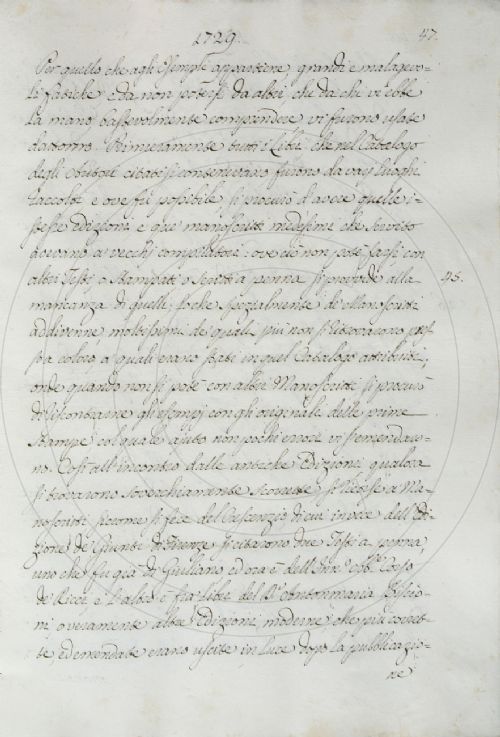 1729.
47.
Per quello che agli Esempli appartiene, grandi e malagevo-
li fatiche e da non potersi da altri, che da chi vi ebbe
la mano, bastevolmente comprendere vi furono usate
dattorno. Primieramente tutti i Libri che nel Catalogo
degli Autori citati si contenevano furono da varj luoghi
raccolte e ove fu possibile, si procurò d'avere quelle i-
stesse edizioni e que' manoscritti medesimi che servito
aveano a' vecchi compilatori: ove ciò non potè farsi con
altri Testi, o stampati o scritti a penna si provvide alla
45.
mancanza di quelli, poche spezialmente de Manoscritti
addivenne, moltissimi de' quali più non si ritrovarono pres-
so a coloro a' quali erano stati in quel Catalogo attribuiti,
onde quando non si potè con altri Manoscritti si procurò
di riscontrare gli esempj con gli originali delle prime
stampe col quale ajuto non pochi errori vi s'emendaro-
no. Così all'incontro dalle antiche Edizioni, qualora
si trovarono soverchiamente scorrette, si ricorse a Ma-
noscritti siccome si fece del Crescenzio di cui invece dell'Edi-
zione de' Giunti di Firenze si citarono due Testi a penna,
uno che fu già di Giuliano ed ora è dell'
de' Ricci e l'altro è fra' Libri del Antonmaria Biscio-
ni, overamente altre Edizioni moderne che più corret-
te ed emendate erano uscite in luce dopo la pubblicazio-
ne